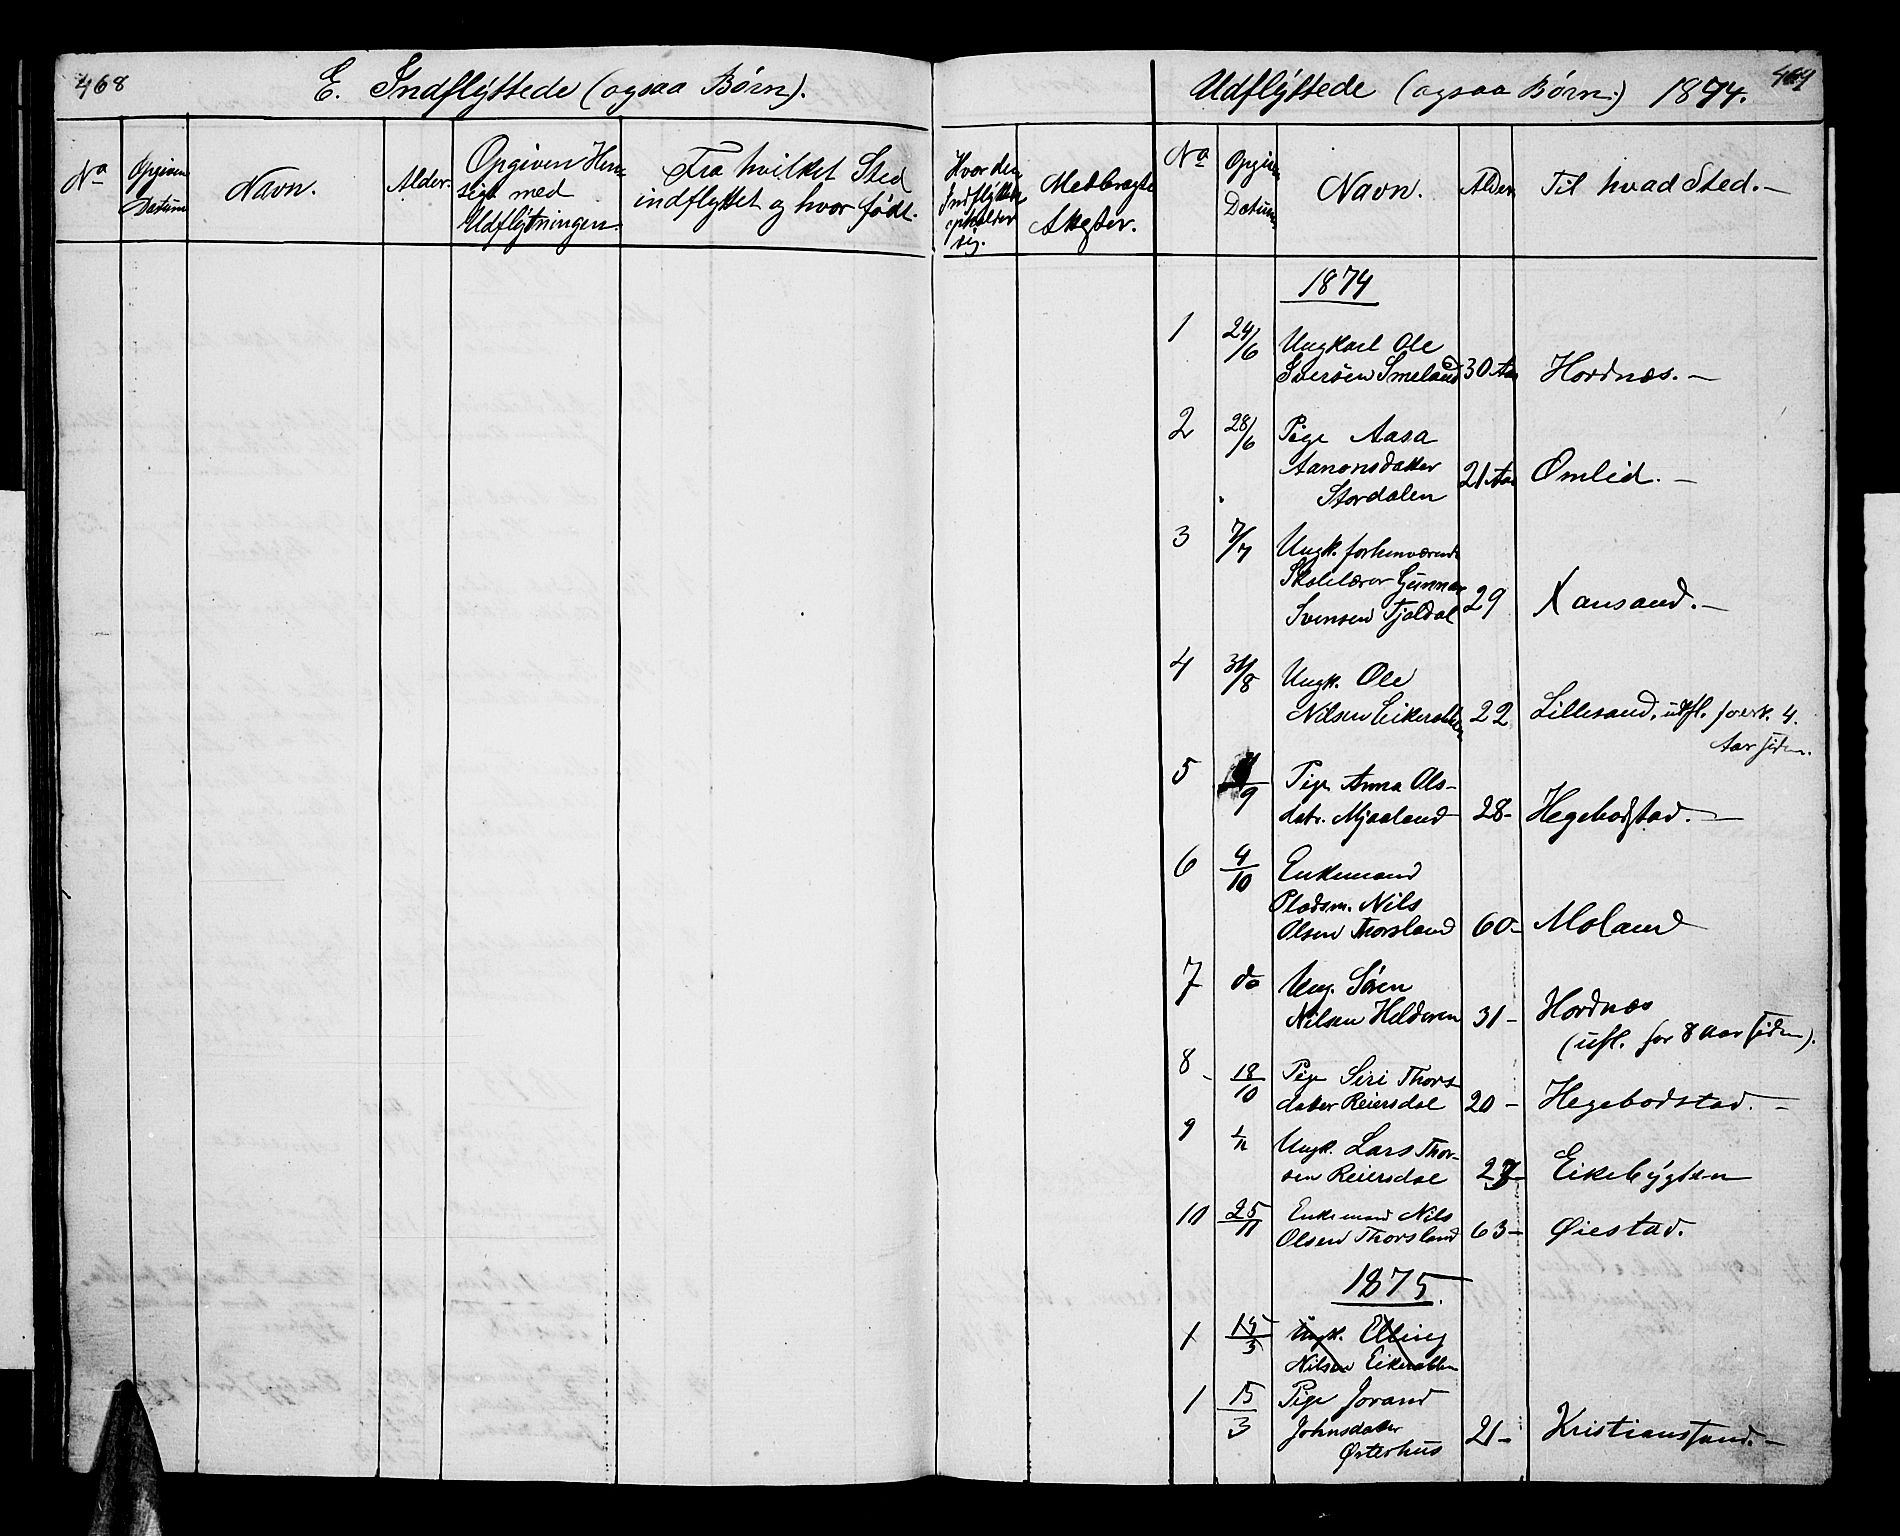 468
E. Indflyttede (ogsaa Børn).
No
Opgiven Datum
Navn.
Alder.
Opgiven Hen-
sigt med
Udflytningen.
Fra hvilket Sted
indflyttet og hvor født.
Hvor den
Indflyttede
opholder
sig.
Medbragte
Attester.
Udflyttede (ogsaa Børn.) 1874.
469
No
Opgiven
Datum
Navn.
Alder
Til hvad Sted.
1874
1 24/6 Ungkarl Ole
Sversen Smeland 30 Aar Hordnæs. -
2 28/6 Pige Aasa
Aanonsdatter 21 Aar Omlid. -
Stordalen
3 7/7 Ungk. forhenværende
Skolelærer Gunnar 29 Xansand. -
Svensen Tjaldal
4 31/8 Ungk. Ole
Nilsen Eikeratten 22 Lillesand, utfl. for 4.
Aar siden.
5 /9 Pige Anna Ols-
datr. Mjaaland 28- Hegebodstad. -
6 4/10 Enkemand
Pladsm. Nils
Olsen Thorsland 60- Moland
7 do Ung. Søren
Nilsen Helderen 31- Hordnæs
(ufl. for 8 Aar siden).
8- 18/10 Pige Siri Thors-
datter Reiersdal 20- Hegebodstad. -
9 1/11 Ungk. Lars Thor-
sen Reiersdal 27- Eikebygden
10 25/11 Enkemand Nils
Olsen Thorsland 63- Øiestad.
1875.
1 15/3 Ungk. Elling
Nilsen Eikeratten
1 15/3 Pige Jorand
Johnsdatter 21- Kristianssand. -
Østerhus